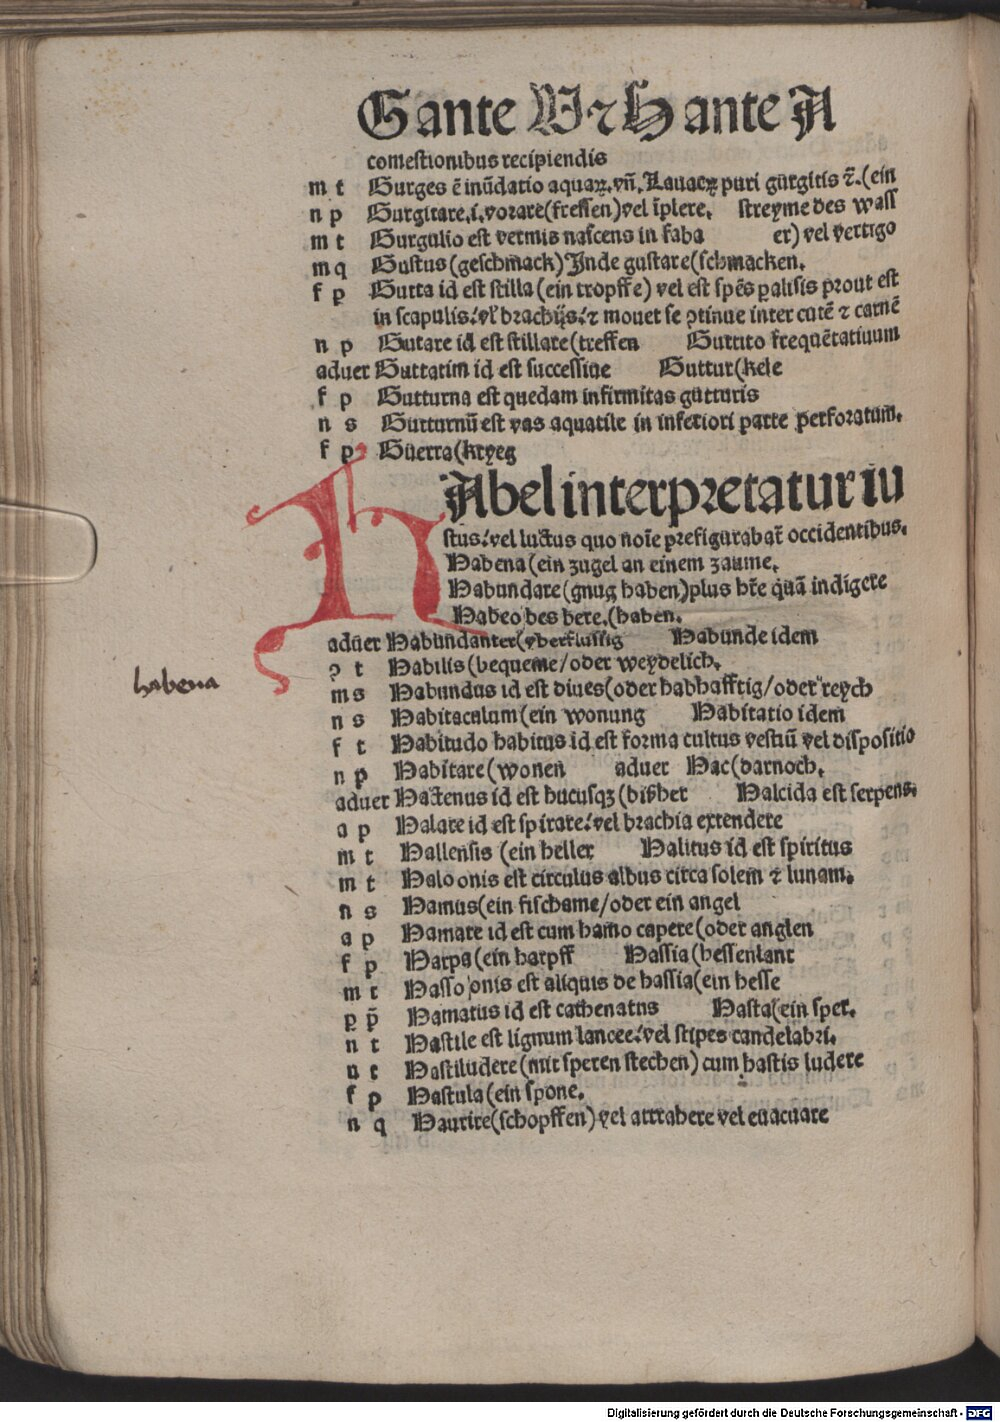 G ante V ⁊ H ante A
comestionibus recipiendis
m t Gurges ē inūdatio aquaꝝ. vñ. Lauacꝝ puri gurgitis ⁊̄. (ein
n p Gurgitare .i. vorare (fressen) vel īplere. streyme des wass
m t Gurgulio est vermis nascens in faba er) vel vertigo
m q Gustus (geschmack) Inde gustare (schmacken.
f p Gutta id est stilla (ein tropffe) vel est spēs paliſis prout est
in scapulis: vl̕ brachijs: ⁊ mouet se ꝯtinue inter cutē ⁊ carnē
n p Gutare id est stillare (treffen Guttito frequētatiuum
aduer Guttatim id est successiue Guttur (kele
f p Gutturna est quedam infirmitas gutturis
n s Gutturnū est vas aquatile in inferiori parte perforatum.
f p Guerra (kryeg
HAbel interpretatur iu
stus: vel luctus quo noīe prefigurabat᷑ occidentibus.
Habena (ein zugel an einem zaume.
Habundare (gnug haben) plus hr̄e quā indigere
Habeo bes bere. (haben.
aduer Habundanter (vberflussig Habunde idem
ꝯ t Habilis (bequeme / oder weydelich.
habena
m s Habundus id est diues (oder habhafftig / oder reych
n s Habitaculum (ein wonung Habitatio idem
f t Habitudo habitus id est forma cultus vestiū vel dispositio
n p Habitare (wonen aduer Hac (darnoch.
aduer Hactenus id est hucusqꝫ (bißher Halcida est serpens.
a p Halare id est spirare: vel brachia extendere
m t Hallensis (ein heller Halitus id est spiritus
m t Halo onis est circulus albus circa solem ⁊ lunam.
n s Hamus (ein fischame / oder ein angel
a p Hamare id est cum hamo capere (oder anglen
f p Harpa (ein harpff Hassia (hessenlant
m t Hasso onis est aliquis de hassia (ein hesse
p p̄ Hamatus id est cathenatus Hasta (ein sper.
n t Hastile est lignum lancee: vel stipes candelabri.
n t Hastiludere (mit speren stechen) cum hastis ludere
f p Hastula (ein spone.
n q Haurire (schopffen) vel attrahere vel euacuare
Digitalisierung gefördert durch die Deutsche Forschungsgemeinschaft - DFG